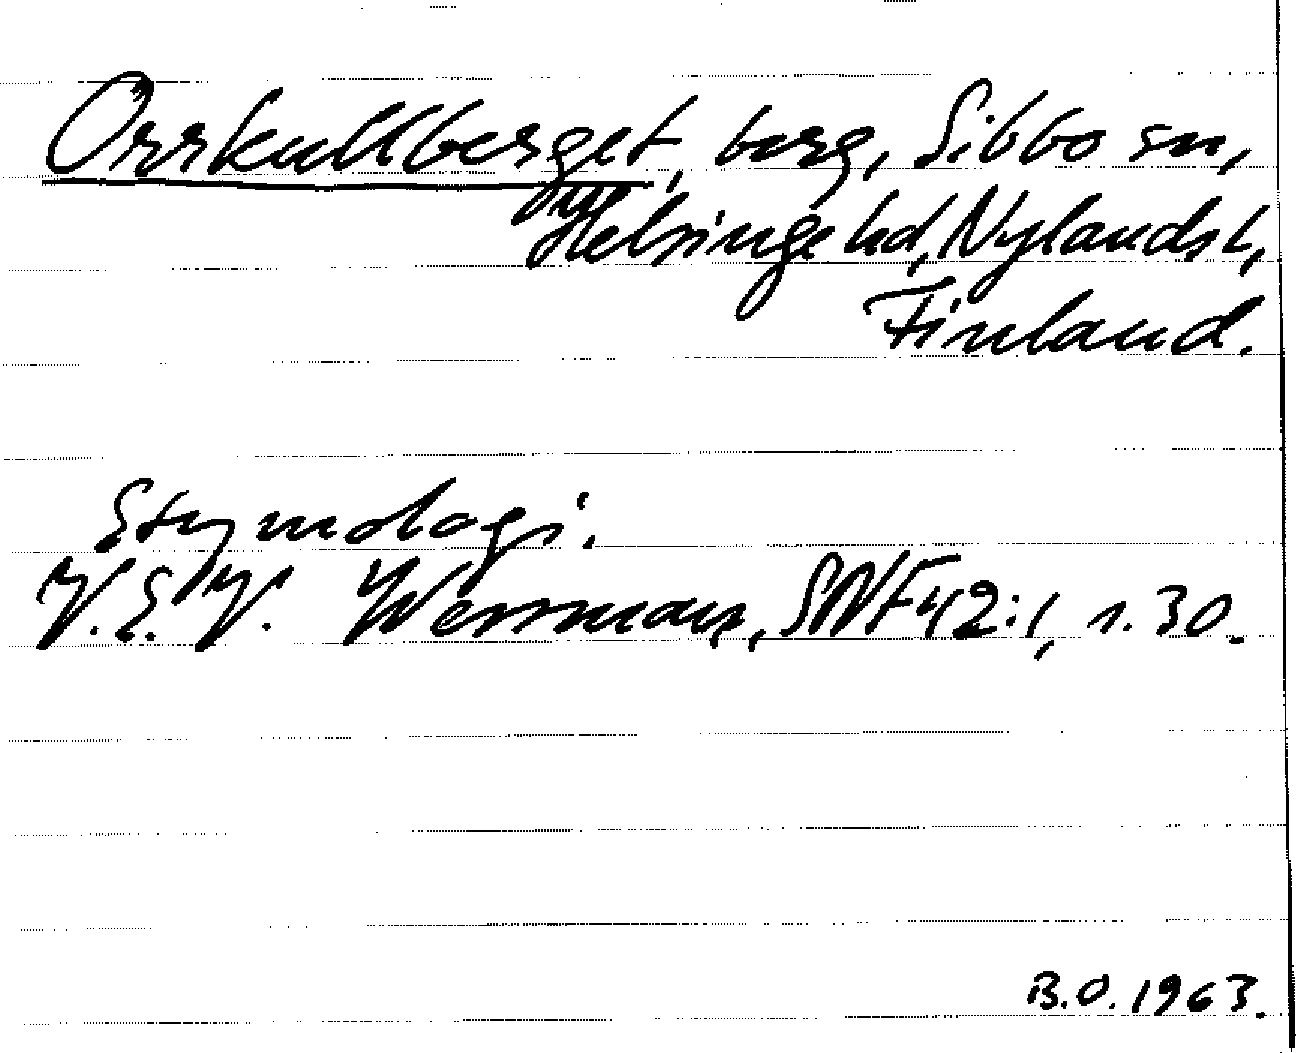 Orrkullberget, berg, Sibbo sn,
Helsinge hd, Nylands l,
Finland.
Etymologi.
V.E.V. Wessman, SNF 42:1, s. 30.
B.O. 1963.